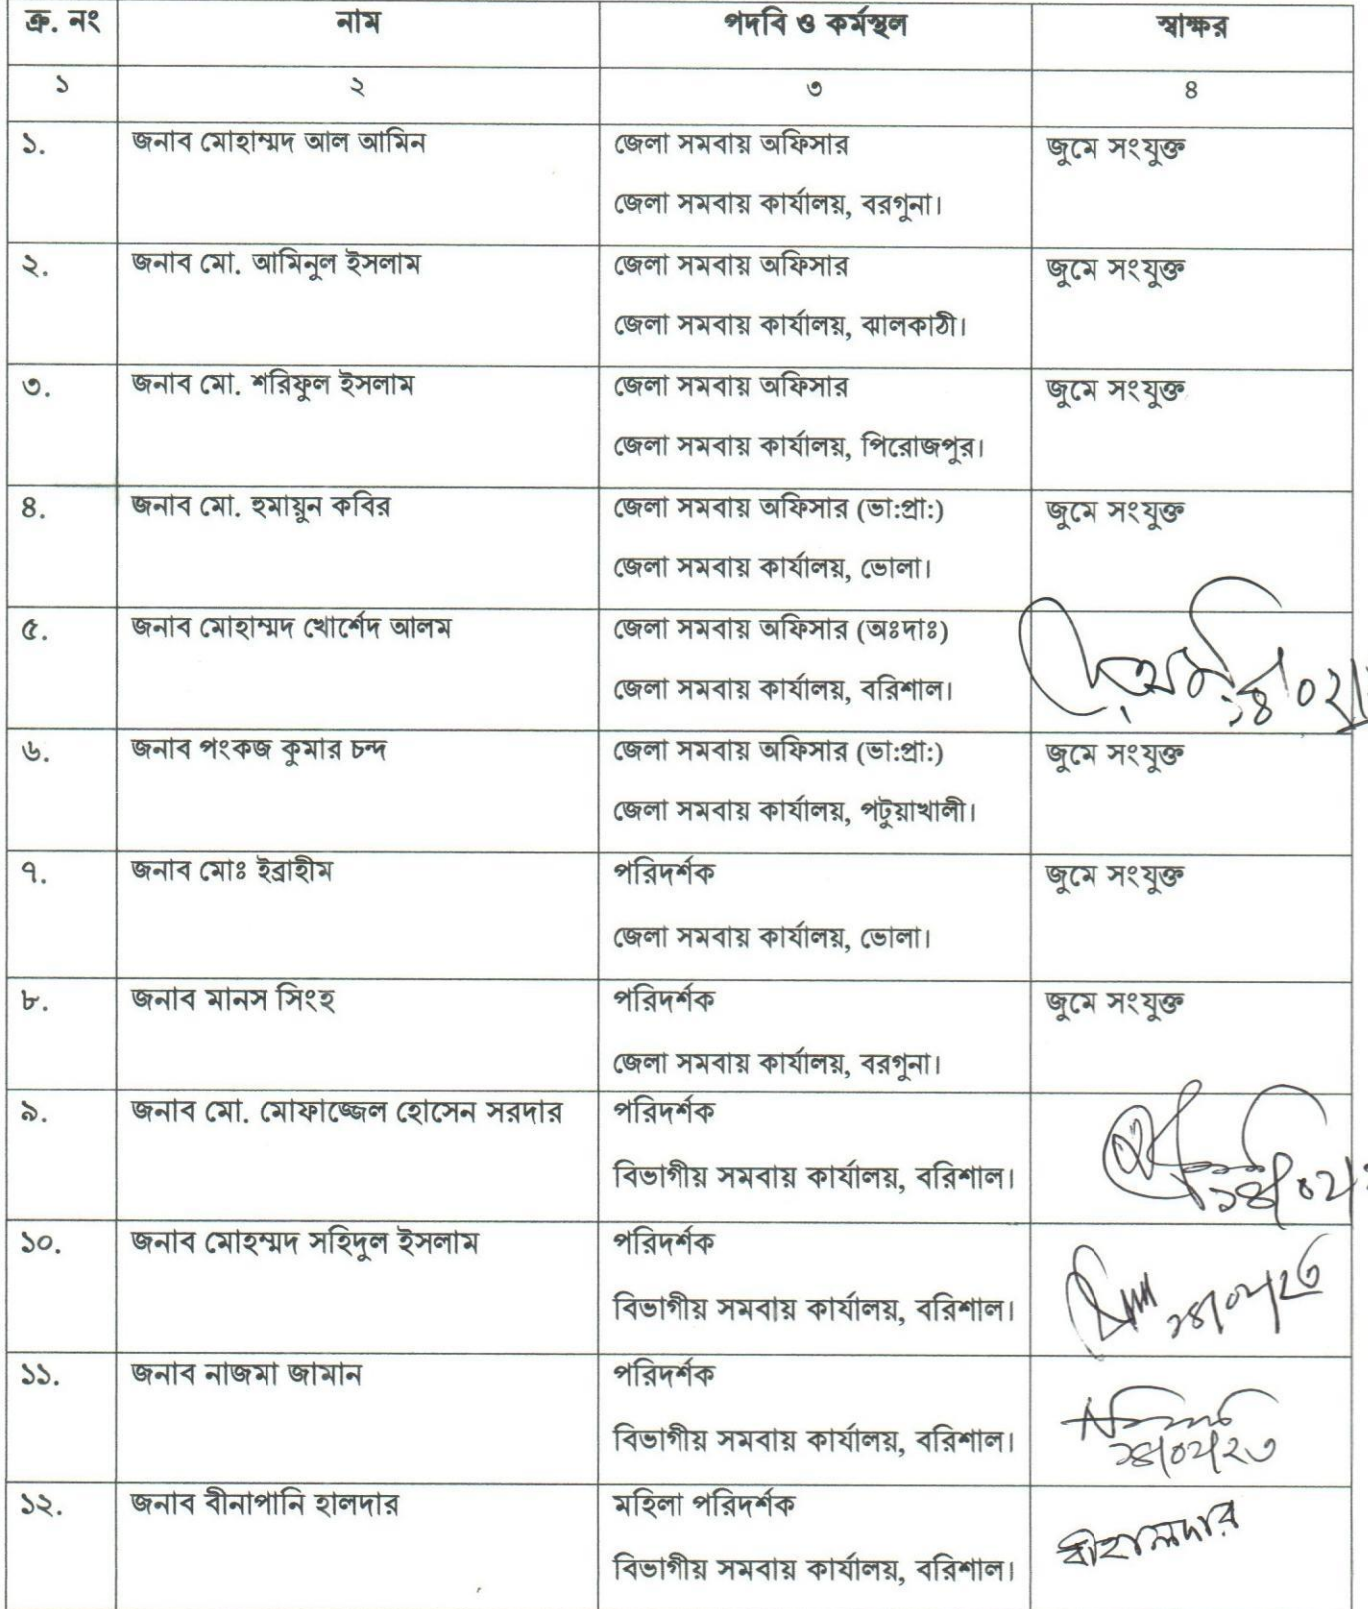 ক্র. নং নাম পদবি ও কর্মস্থল স্বাক্ষর
১ ২ ৩ ৪
১. জনাব মোহাম্মদ আল আমিন জেলা সমবায় অফিসার জুমে সংযুক্ত
জেলা সমবায় কার্যালয়, বরগুনা।
২. জনাব মো. আমিনুল ইসলাম জেলা সমবায় অফিসার জুমে সংযুক্ত
জেলা সমবায় কার্যালয়, ঝালকাঠী।
৩. জনাব মো. শরিফুল ইসলাম জেলা সমবায় অফিসার জুমে সংযুক্ত
জেলা সমবায় কার্যালয়, পিরোজপুর।
৪. জনাব মো. হুমায়ুন কবির জেলা সমবায় অফিসার (ভা:প্রা:) জুমে সংযুক্ত
জেলা সমবায় কার্যালয়, ভোলা।
৫. জনাব মোহাম্মদ খোর্শেদ আলম জেলা সমবায় অফিসার (অঃদাঃ)
জেলা সমবায় কার্যালয়, বরিশাল।
৬. জনাব পংকজ কুমার চন্দ জেলা সমবায় অফিসার (ভা:প্রা:) জুমে সংযুক্ত
জেলা সমবায় কার্যালয়, পটুয়াখালী।
৭. জনাব মোঃ ইব্রাহীম পরিদর্শক জুমে সংযুক্ত
জেলা সমবায় কার্যালয়, ভোলা।
৮. জনাব মানস সিংহ পরিদর্শক জুমে সংযুক্ত
জেলা সমবায় কার্যালয়, বরগুনা।
৯. জনাব মো. মোফাজ্জেল হোসেন সরদার পরিদর্শক
বিভাগীয় সমবায় কার্যালয়, বরিশাল।
১০. জনাব মোহম্মদ সহিদুল ইসলাম পরিদর্শক
বিভাগীয় সমবায় কার্যালয়, বরিশাল। ১৪/০২/২৩
১১. জনাব নাজমা জামান পরিদর্শক
বিভাগীয় সমবায় কার্যালয়, বরিশাল। ১৪/০২/২৩
১২. জনাব বীনাপানি হালদার মহিলা পরিদর্শক বীহালদার
বিভাগীয় সমবায় কার্যালয়, বরিশাল।